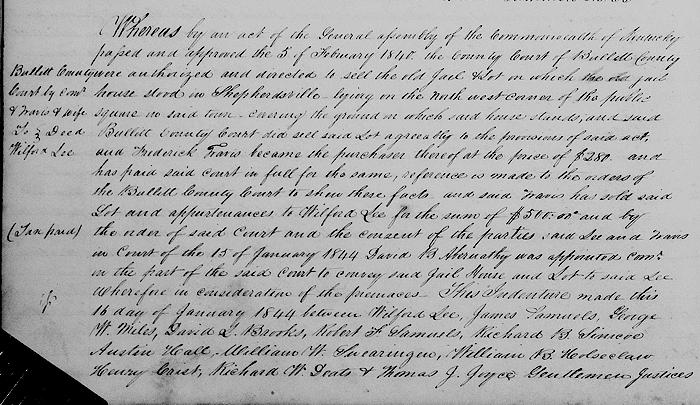 Whereas by an act of the General assembly of the Commonwealth of Kentucky
passed and approved the 5 of February 1840. the County Court of Bullett County
were authorized and directed to sell the old Jail & Lot on which the old jail
house stood in Shephordsville lying on the North west corner of the public
square in said town covering the ground on which said house stands, and said
Bullitt County Court did sell said Lot agreeably to the provisions of said act,
and Frederick Travis became the purchaser thereof at the price of $280. and
has paid said court in full for the same, reference is made to the orders of
the Bullett County Court to show these facts and said Travis has sold said
Lot and appurtenances to Wilford Lee for the sum of $500.00 and by
the order of said Court and the consent of the parties said Lee and Travis
in Court of the 15 of January 1844 David B Abernathy was appointed comr
on the part of the said Court to convey said Jail House and Lot to said Lee
Wherefore in consideration of the premaces This Indenture made this
16 day of January 1844 between Wilford Lee, James Samuels, George
W. Miles, David L. Brooks, Robert F. Samuels, Richard B. Simcoe
Austin Hall, William W. Swearingen, William B. Holsclaw
Henry Crist, Richard W. Deats & Thomas J. Joyce Gentlemen Justices
Bullett County
Court by comr
& Travis & wife
To } Deed
Wilford Lee
(Tax paid)